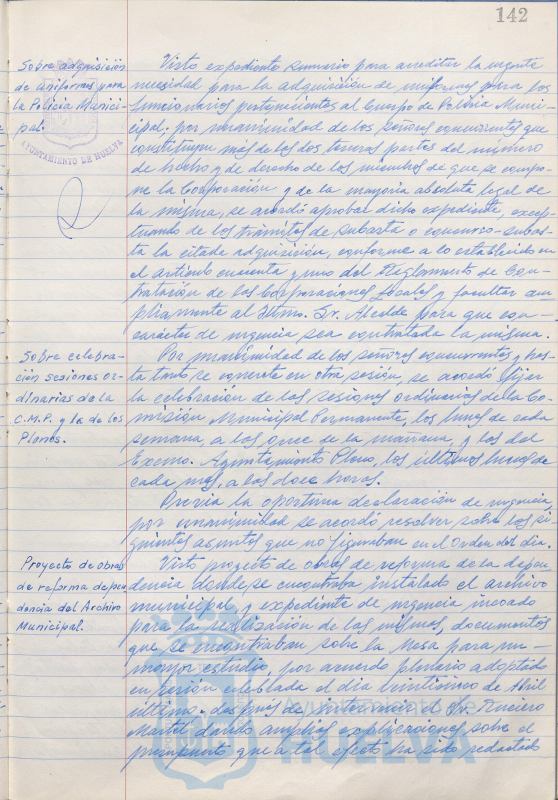 142
Sobre adquisición
de uniformes para
la Policia Munici-
pal.
AYUNTAMIENTO DE HUELVA
Visto expediente sumario para acreditar la urgente
necesidad para la adquisición de uniformes para los
funcionarios pertenecientes al Cuerpo de Policia Muni-
cipal; por unanimidad de los señores concurrentes que
constituyen más de las dos terceras partes del número
de hecho y de derecho de los miembros de que se compo-
ne la Corporación y de la mayoria absoluta legal de
la misma, se acordó aprobar dicho expediente, excep-
tuando de los trámites de subasta o concurso-subas-
ta la citada adquisición, conforme a lo establecido en
el artículo cuarenta y uno del Reglamento de Con-
tratación de las Corporaciones Locales y facultar am-
pliamente al Iltmo. Sr. Alcalde para que con
carácter de urgencia sea contratada la misma.
Sobre celebra-
ción sesiones or-
dinarias de la
C.M.P. y la de los
Plenos.
Por unanimidad de los señores concurrentes y has-
ta tanto se concrete en otra sesión, se acordó fijar
la celebración de las sesiones ordinarias de la Co-
misión Municipal Permanente, los lunes de cada
semana, a las once de la mañana, y las del
Excmo. Ayuntamiento Pleno, los últimos lunes de
cada mes, a las doce horas.
Previa la oportuna declaración de urgencia,
por unanimidad se acordó resolver sobre los si-
guientes asuntos que no figuraban en el Orden del dia.
Proyecto de obras
de reforma depen-
dencia del Archivo
Municipal.
Visto proyecto de obras de reforma de la depen-
dencia donde se encontraba instalado el archivo
municipal, y expediente de urgencia incoado
para la realización de las mismas, documentos
que se encontraban sobre la Mesa para su
mayor estudio, por acuerdo plenario adoptado
en sesión celebrada el dia veintinueve de Abril
último. despues de informar el Sr. Ruciero
Martel dando amplias explicaciones sobre el
presupuesto que a tal efecto ha sido redactado
Ayuntamiento de
HUELVA